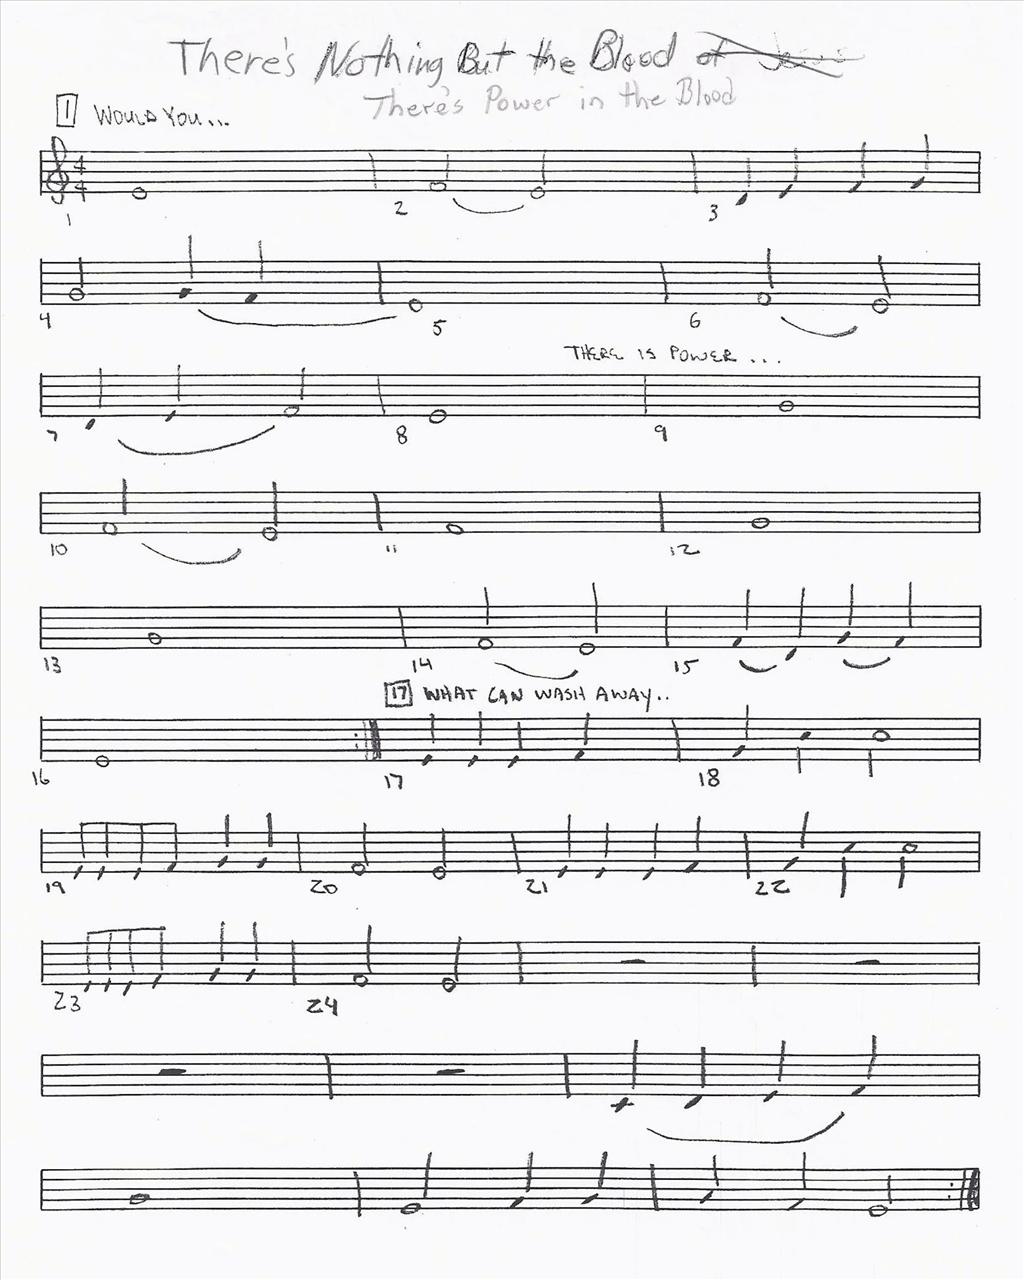 There's Nothing But the Blood of Jesus
There's Power in the Blood
1 WOULD YOU...
4
4
1 2 3
4 5 6
THERE IS POWER ...
7 8 9
10 11 12
13 14 15
17 WHAT CAN WASH AWAY..
16 17 18
19 20 21 22
23 24